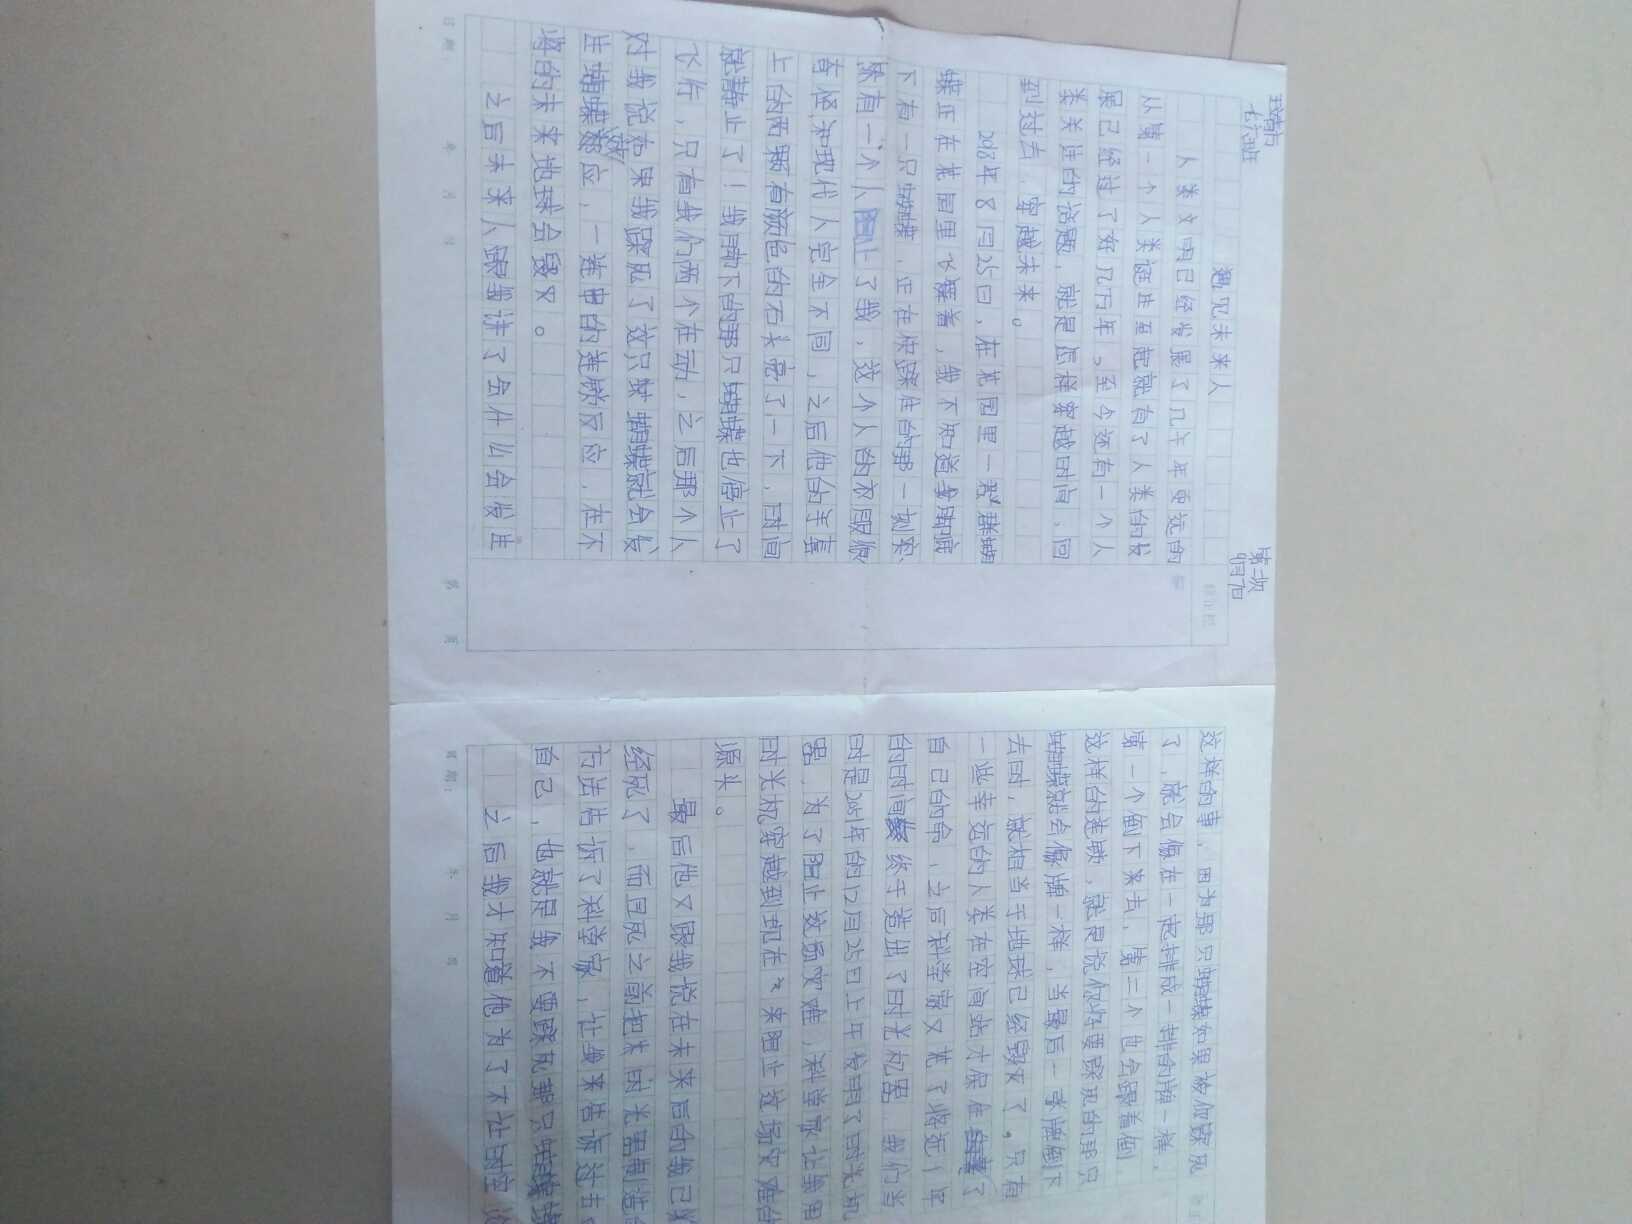 七六班
第二次
9月7日
遇见未来人
人类文明已经发展了几千年更远的
从第一个人类诞生至起就有了人类的发
展已经过了好几万年。至今还有一个人
类关注的话题，就是怎样穿越时间，回
到过去，穿越未来。
2018年8月25日，在花园里一群蝴
蝶正在花园里飞舞着，我不知道身
下有一只蝴蝶，正在快踩住的那一刻突
然有一个人阻止了我，这个人的衣服很
奇怪，和现代人完全不同，之后他的手
上的两颗有颜色的石头亮了一下，时间
就静止了！我脚下的那只蝴蝶也停止了
飞行，只有我们两个在动，之后那个人
对我说如果我踩死了这只蝴蝶就会发
生蝴蝶效应，一连串的连锁反应，在不
将的未来地球会毁灭。
之后未来人跟我讲了会什么会发生
这样的事，因为那只蝴蝶如果被你踩死
了，就会像在一起排成一排的牌一样，
第一个倒下来去，第二个也会跟着倒
这样的连锁，就是说你将要踩死的那只
蝴蝶就会像牌一样，当最后一张牌倒下
去时，就相当于地球已经毁灭了，只有
一些幸运的人类在空间站才保住了
自己的命，之后科学家又花了将近1年
的时间终于造出了时光机器，我们当
时是2051年的12月25日上午发明了时光机
器，为了阻止这场灾难，科学家让我用
时光机穿越到现在来阻止这场灾难的
源头。
最后他又跟我说在未来后的我已
经死了，而且死之前把时光器制造
方法告诉了科学家，让我来告诉过去
自己，也就是我不要踩死那只蝴蝶
之后我才知道他为了不让时空